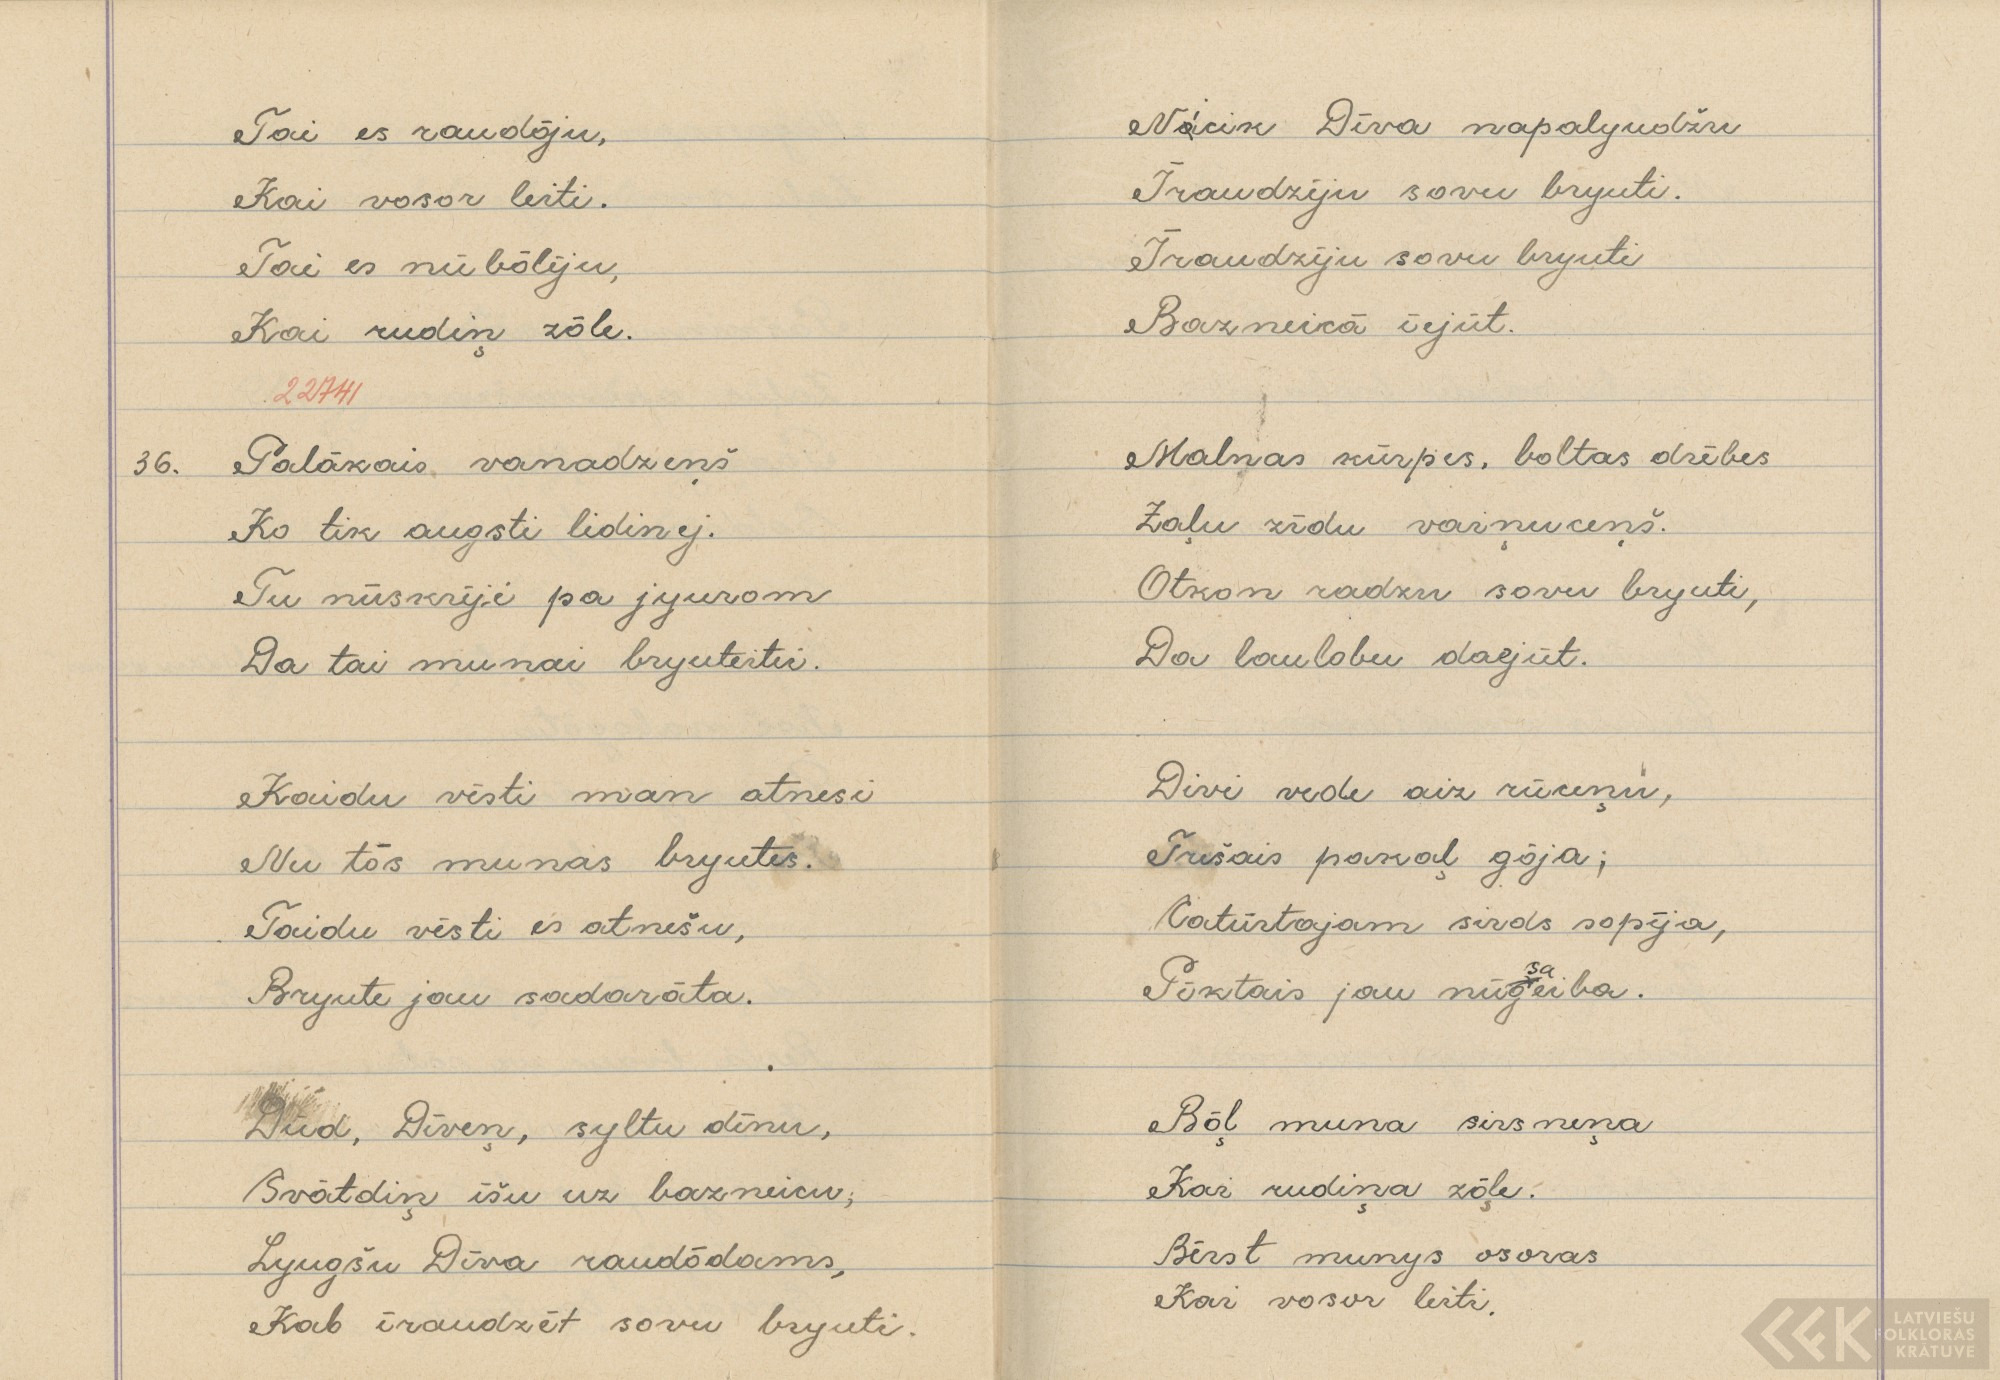 Tai es raudōju,
Kai vosor leiti.
Tai es nūbōlēju,
Kai rudiņ zōle.
22741
36. Palākais vanadzeņš
Ko tik augsti lidinej.
Tu nūskrēji pa jyurom
Da tai munai bryuteitei.
Kaidu vēsti man atnesi
Nu tōs munas bryutes.
Taidu vēsti es atnešu,
Bryute jau sadarāta.
Dūd, Dīveņ, syltu dīnu,
Svātdiņ īšu uz bazneicu;
Lyugšu Dīva raudōdams,
Kab īraudzēt sovu bryuti.
Nácik Dīva napalyudžu
Īraudzēju sovu bryuti.
Īraudzēju sovu bryuti
Bazneicā īejūt.
Malnas kūrpes, boltas drēbes
Zaļu zīdu vaiņuceņš.
Otkon radzu sovu bryuti,
Da laulobu daejūt.
Divi vede aiz rūceņu,
Trešais pakaļ gōja;
Catūrtajam sirds sopēja,
Pīktais jau nūgeiba.
sa
Bōļ muna sirsneņa
Kai rudiņa zōļe.
Bērst munys osoras
Kai vosor leiti.
LATVIEŠU
FOLKLORAS
KRĀTUVE